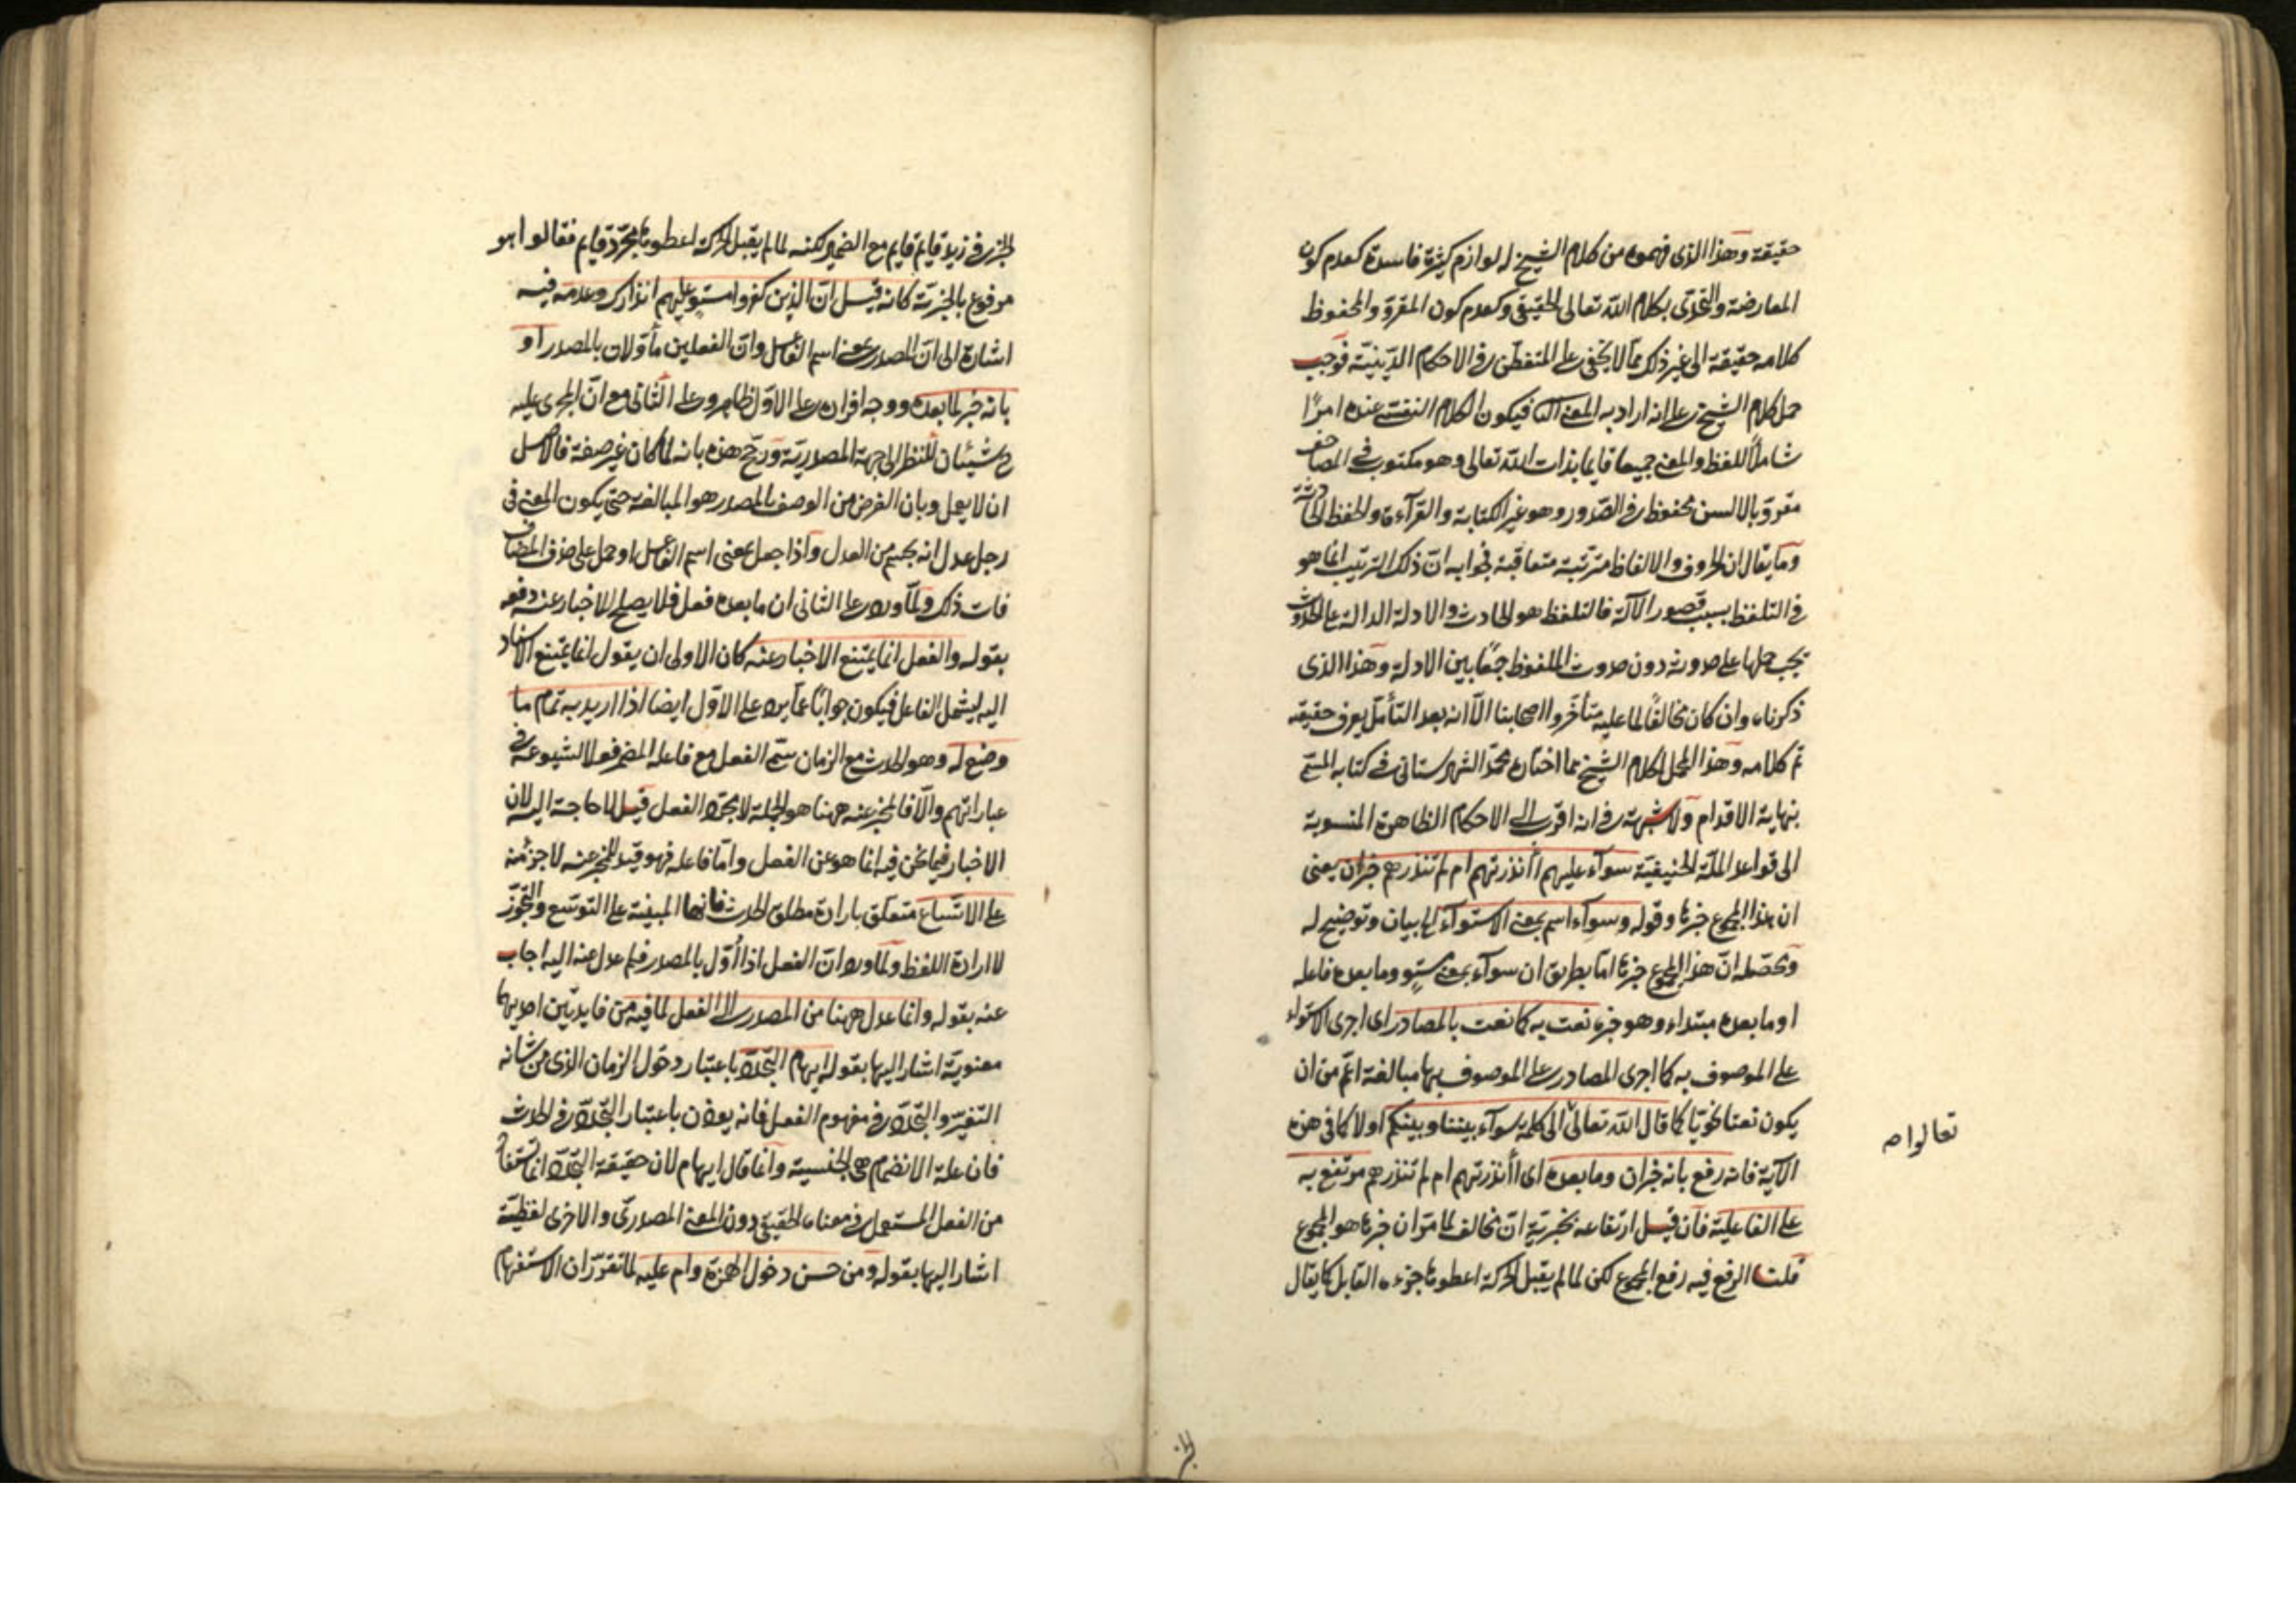 حقيقة وهذا الذى فهموه من كلام الشيخ له لوازم كثيرة فاسدة كعدم كون
المعارضة والتحدّى بكلام الله تعالى الحقيقى وكعدم كون المقروّ والمحفوظ
كلامه حقيقة الى غير ذلك ممّا لا يخفى على المتفطّن فى الاحكام الدّينيّة فوجب
حمل كلام الشيخ على انه اراد به المعنى الثا فيكون الكلام النفسى عنده امرًا
شاملًا للفظ والمعنى جميعا قايما بذات الله تعالى وهو مكتوب فى المصاحف
مقروّ بالالسن محفوظ فى الصّدور وهو غير الكتابة والقرآءة والحفظ الحادثة
وما يقال ان الحروف والالفاظ مترتّبة متعاقبة فجوابه انّ ذلك الترتيب انما هو
فى التلفظ بسبب قصور الآلة فالتلفظ هو الحادث والادلة الدالة على الحدوث
يجب حملها على حدوثه دون حدوث الملفوظ جمعًا بين الادلة وهذا الذى
ذكرناه وان كان مخالفًا لما عليه متأخّروا اصحابنا الّا انه بعد التأمّل يعرف حقيقته
تم كلامه وهذا المحمل لكلام الشيخ مما اختاره محمّد الشهرستانى فى كتابه المسمّى
بنهاية الاقدام ولا شبهة فى انه اقرب الى الاحكام الظاهرة المنسوبة
الى قواعد الملّة الحنيفيّة سوآء عليهم أأنذرتهم ام لم تنذرهم خبران يعنى
ان هذا المجموع خبرها وقوله وسوآء اسم بمعنى الاستوآء الخ بيان وتوضيح له
ومحصّله انّ هذا المجموع خبرها امّا بطريق ان سوآء بمعنى مستوٍ وما بعده فاعله
او ما بعده مبتداء وهو خبره نعت به كما نعت بالمصادر اى اجرى الاستواء
على الموصوف به كما اجرى المصادر على الموصوف بها مبالغة اعمّ من ان
يكون نعتا نحويّا كما قال الله تعالى الى كلمة سوآء بيننا وبينكم اولا كما فى هذه
تعالوا صح
الآية فانه رفع بانه خبران وما بعده اى أأنذرتهم ام لم تنذرهم مرتفع به
على الفاعلية فان قيل ارتفاعه بخبريّة انّ مخالف لما مرّ ان خبرها هو المجموع
قلت الرفع فيه رفع المجموع لكن لما لم يقبل الحركة اعطوها جزءه القابل كما يقال
الخبر
الخبر فى زيد قايم قايم مع الضمير ولكنه لما لم يقبل الحركة اعطوها مجرّد قايم فقالوا هو
مرفوع بالخبريّة كانه قيل انّ الذين كفروا مستو عليهم انذارك وعدمه فيه
اشارة الى انّ المصدر بمعنى اسم الفاعل وانّ الفعلين مأوّلان بالمصدر او
بانه خبر لما بعده ووجه افراده على الاوّل ظاهر وعلى الثّانى مع انّ المجرى عليه
ح شيئان للنظر الى جهة المصدريّة ورجّح هذه بانه لما كان غير صفة فالاصل
ان لا يعمل وبان الغرض من الوصف بالمصدر هو المبالغة حتى يكون المعنى فى
رجل عدل انه تجسم من العدل واذا جعل بمعنى اسم الفاعل او حمل على حذف المضاف
فات ذلك ولمّا ورد على الثانى ان ما بعده فعل فلا يصلح للاخبار عنه دفعه
بقوله والفعل انما يمتنع الاخبار عنه كان الاولى ان يقول انما يمتنع الاسناد
اليه ليشمل الفاعل فيكون جوابًا عمّا يرد على الاوّل ايضا اذا اريد به تمام ما
وضع له وهو الحدث مع الزمان سمّى الفعل مع فاعله المضمر فعلا لشيوعه فى
عباراتهم والّا فالمخبر عنه ههنا هو الجملة لا مجرّد الفعل قيل لا حاجة اليه لان
الاخبار فيما نحن فيه انما هو عن الفعل وامّا فاعله فهو قيد للمخبر عنه لا جزء منه
على الاتّساع متعلّق بارادة مطلق الحدث فانها المبنيّة على التوسّع والتجوّز
لا ارادة اللفظ ولمّا ورد انّ الفعل اذا أوّل بالمصدر فلم عدل عنه اليه اجاب
عنه بقوله وانما عدل ههنا من المصدر الى الفعل لما فيه من فايدتين احديهما
معنويّة اشار اليها بقوله ايهام التجدّد باعتبار دخول الزمان الذى من شانه
التغيّر والتجدّد فى مفهوم الفعل فانه يؤذن باعتبار التجدّد فى الحدث
فان علة الانضمام هى الجنسية وانما قال ايهام لان حقيقة التجدّد انما تستفاد
من الفعل المستعمل فى معناه الحقيقى دون المعنى المصدرىّ والاخرى لفظيّة
اشار اليها بقوله ومن حسن دخول الهمزة وام عليه لما تقرّر ان الاستفهام